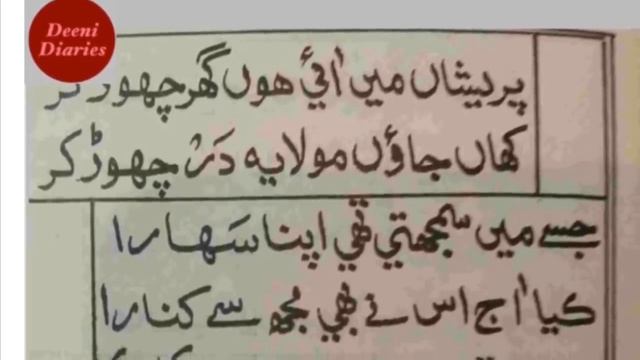 Deeni
Diaries
پریشاں میں آئی ھوں گھر چھوڑ کر
کہاں جاؤں مولا یہ دَرْ چھوڑ کر
جسے میں سمجھتی تھی اپنا سَہارا
کیا آج اس نے بھی مجھ سے کنارا